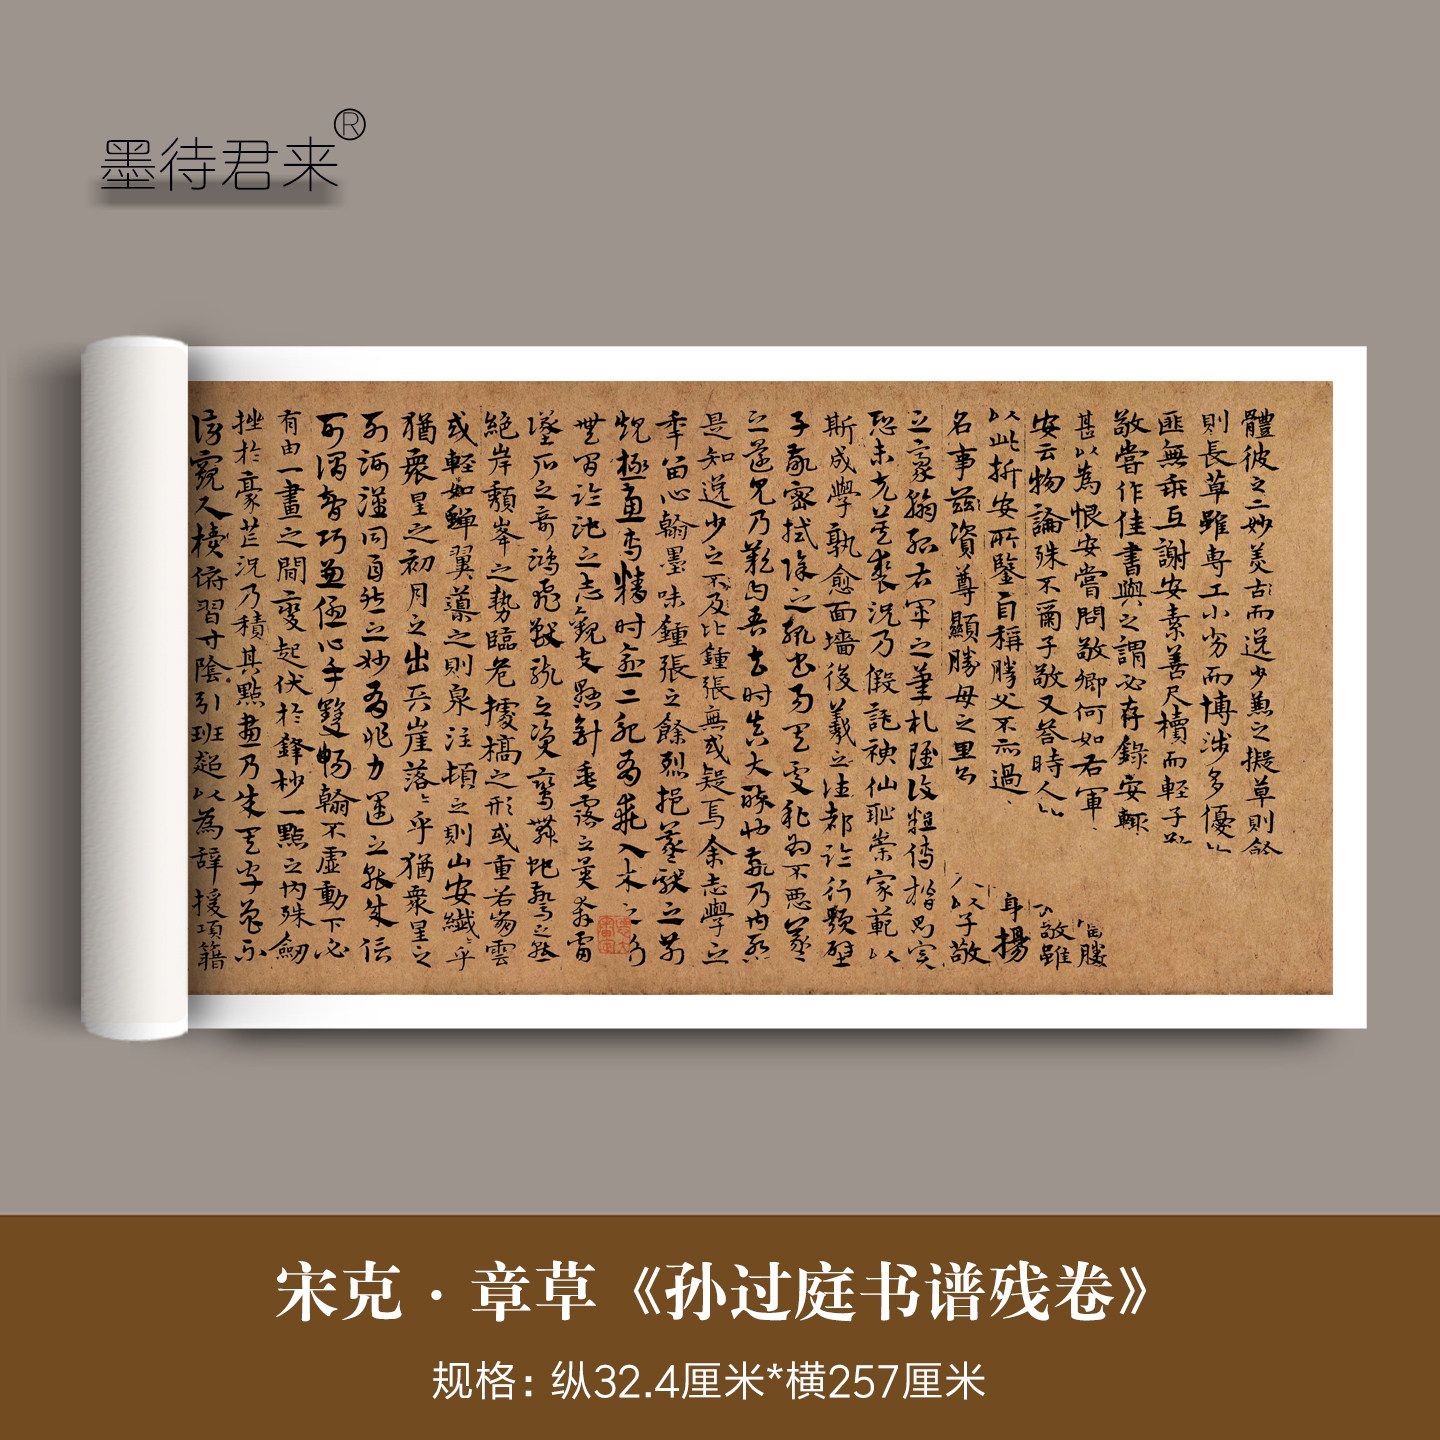 墨待君来®
體彼之二妙美古而逸少兼之擬草則餘
則長草雖專工小劣而博涉多優
匪無乖互謝安素善尺牘而輕子敬
敬嘗作佳書與之謂必存錄安輒
甚以為恨安嘗問敬卿何如右軍 當勝
安云物論殊不爾子敬又答時人 敬雖
以此折安所鑒自稱勝父不亦過 身揚
名事茲資尊顯勝母之里 以子敬
之豪翰紹右軍之筆札雖復粗傳楷則實
恐未克箕裘況乃假託神仙恥崇家範以
斯成學孰愈面墻後羲之往都臨行題壁
子敬密拭除之輒書易其處私為不惡羲
之還見乃歎曰吾去時真大醉也敬乃內慙
是知逸少之不及比鍾張無或疑焉余志學之
年留心翰墨味鍾張之餘烈挹羲獻之前
規極慮專精時逾二紀有乖入木之術
無間臨池之志觀夫懸針垂露之異奔雷
墜石之奇鴻飛獸駭之資鸞舞虵驚之態
絕岸頹峯之勢臨危據槁之形或重若崩雲
或輕如蟬翼導之則泉注頓之則山安纖々乎
猶衆星之初月之出天崖落々乎猶衆星之
列河漢同自然之妙有非力運之能成信
可謂智巧兼優心手雙暢翰不虛動下必
有由一畫之間變起伏於鋒杪一點之內殊衂
挫於豪芒況乃積其點畫乃成其字曾不
傍窺尺櫝俯習寸陰引班超以為辭援項籍
宋克·章草《孙过庭书谱残卷》
规格：纵32.4厘米*横257厘米